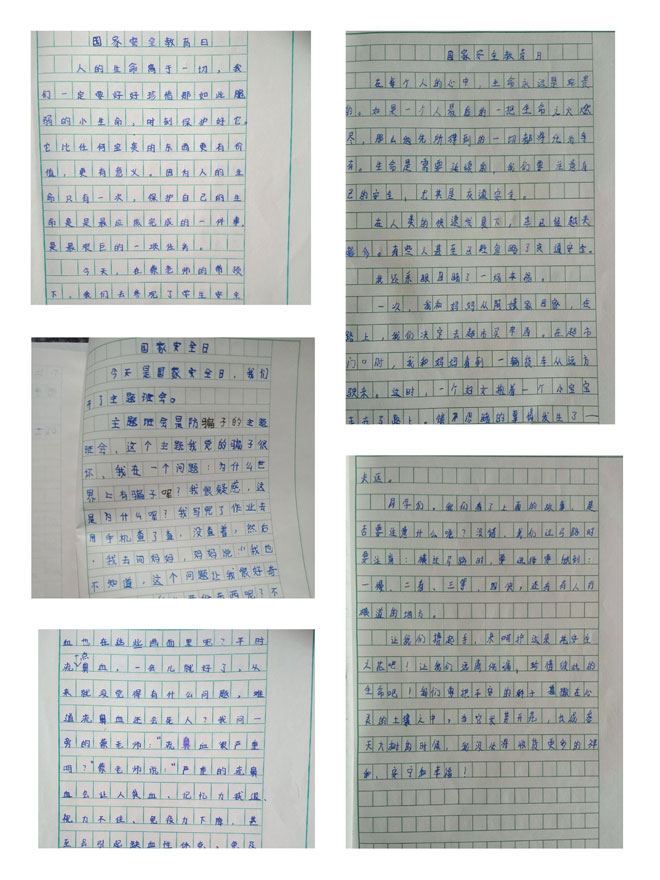 国家安全教育日
人的生命高于一切，我
们一定要好好珍惜那如此脆
弱的小生命，时刻保护好它。
它比任何宝贵的东西更有价
值，更有意义。因为人的生
命只有一次，保护自己的生
命是是最应该完成的一件事，
是最艰巨的一项任务。
今天，在蔡老师的带领
下，我们去参观了学生安全
国家安全日
今天是国家安全日，我们
开了主题班会。
主题班会是防骗子的主题
班会，这个主题我觉的骗子很
坏，我在一个问题：为什么世
界上有骗子呢？我很疑惑，这
是为什么呢？我写完了作业去
用手机查了查，没查着，然后
，我去问妈妈，妈妈说：“我也
不知道，这个问题让我很好奇
血也在这些两面里呢？平时
流点鼻血，一会儿就好了，从
来就没觉得有什么问题，难
道流鼻血还会死人？我问一
旁的蔡老师：“流鼻血很严重
吗？”蔡老师说：“严重的流鼻
血会让人失血，记忆力我退、
视力不佳、免疫力下降，甚
至会引起缺血性休克，危及
国家安全教育日
在每个人的心中，生命永远是珍贵
的。如果一个人最自的一把生命之火燃
尽，那么他先所得到的一切都将化为乌
有。生命是需要延续的，我们要注意自
己的安全，尤其是交通安全。
在人类的快速发展下，车已经越来
越多。有些人甚至已经忽略了交通安全。
我还亲眼目睹了一场车祸。
一次，我和妈妈从阿姨家回家，这
路上，我们决定去超市买苹果。在超市
门口时，我和妈妈看到一辆货车从远方
驶来。这时，一个妇女抱着一个小宝宝
夫医。
同学们，我们看了上面的故事，是
否要注意什么呢？没错，我们过马路时
要注意：横过马路时，要选择要做到：
一慢、二看、三等、四快，还要有人行
横道的地方。
让我们携起手，来呵护这来
人花吧！让我们远离伤痛，珍惜彼此的
生命吧！我们要把平安的种子播撒在心
灵的土壤人中，当它发芽开花，长成参
天大树的时候，我没必将收获更多的祥
和、安宁和幸福！